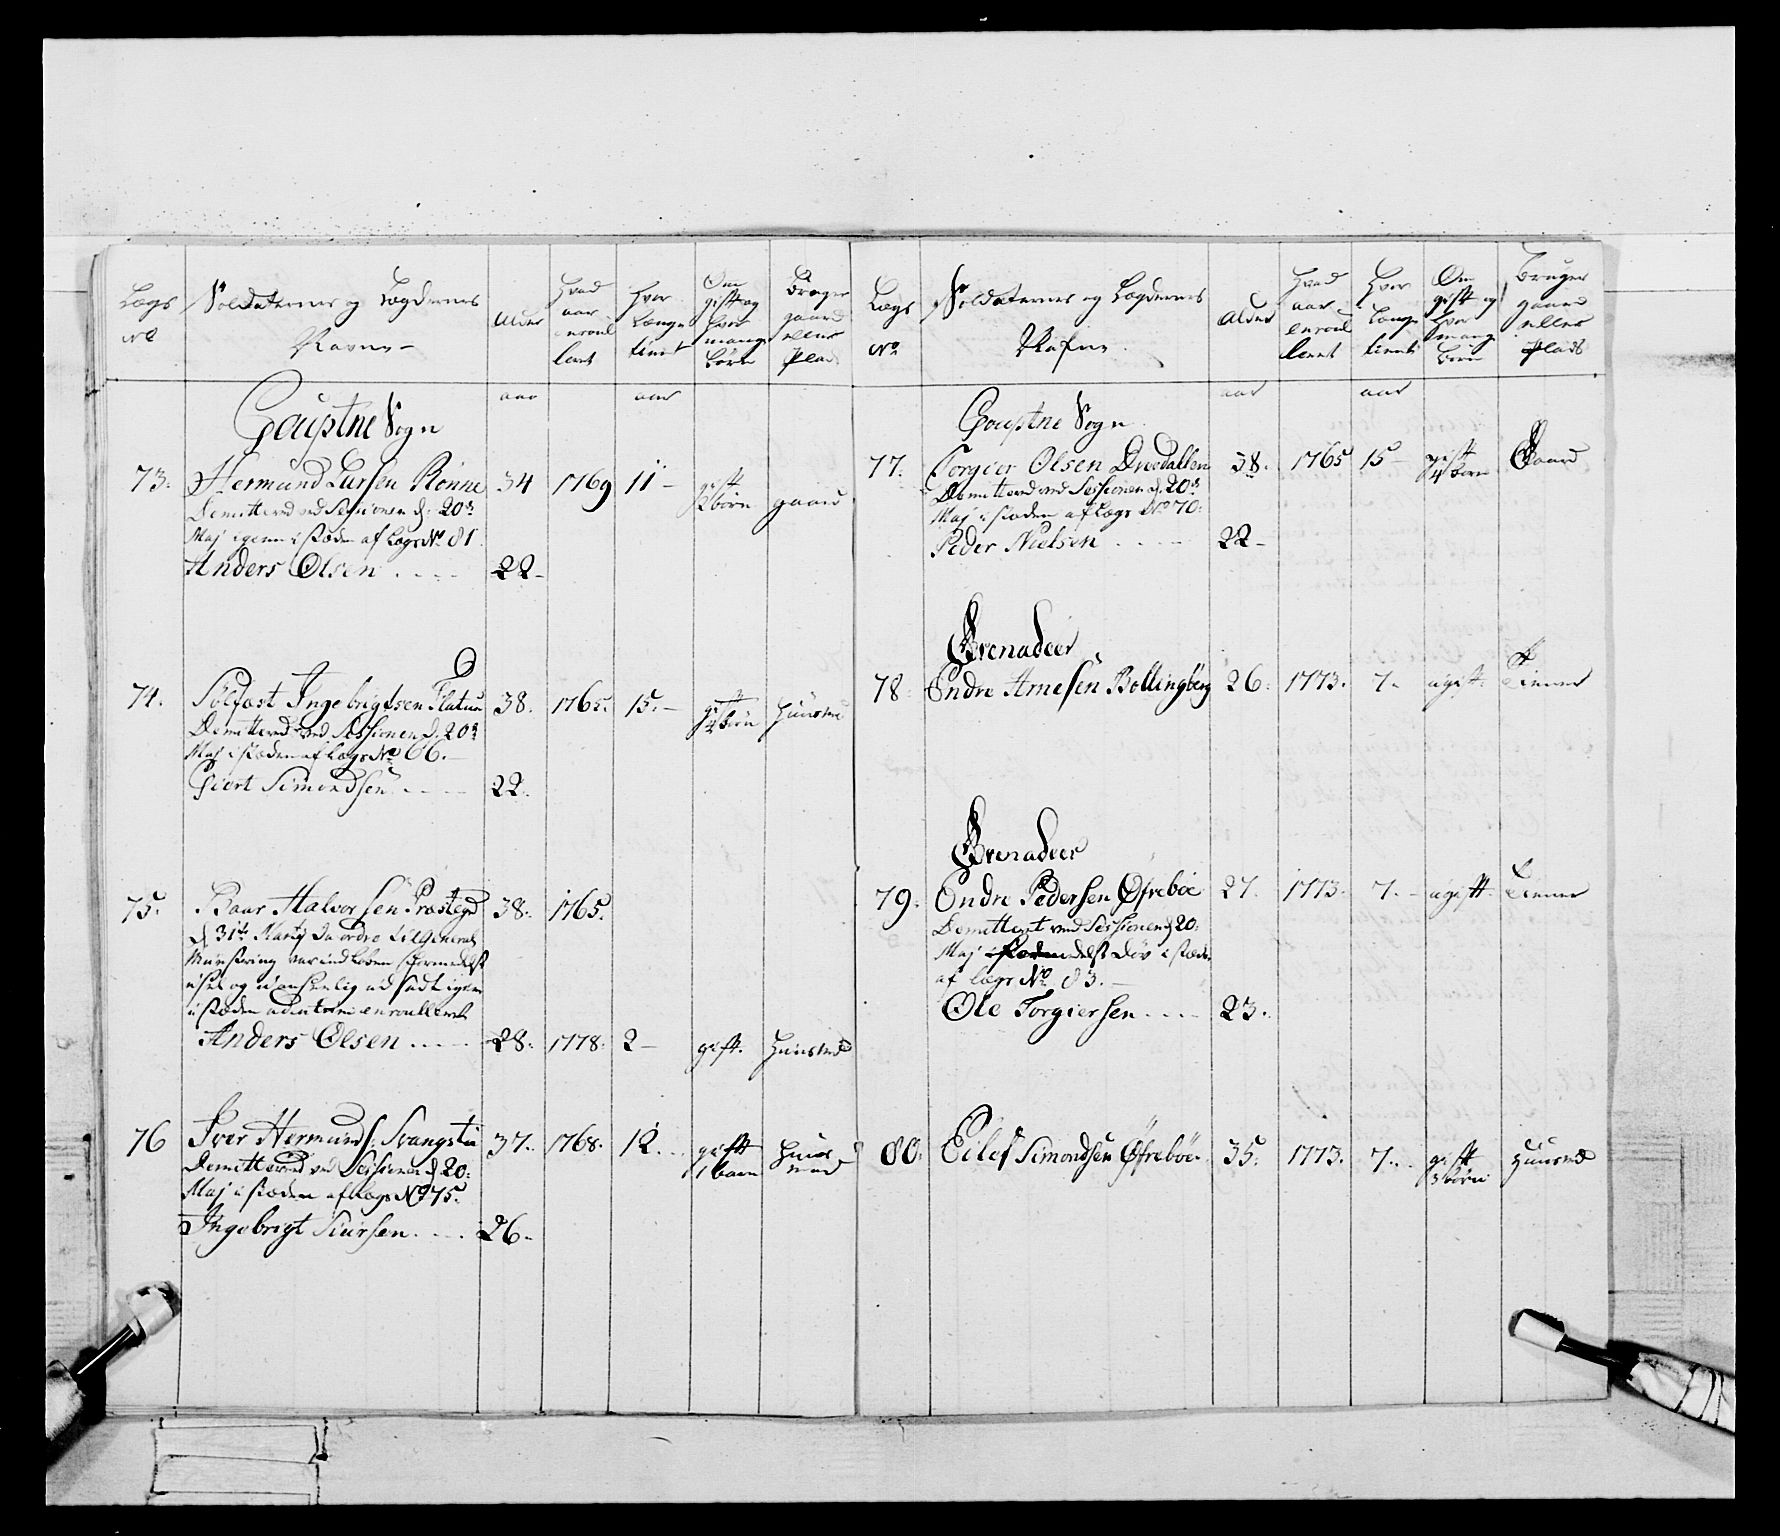 Lægs No
Soldaternes og Lægdernes Navne
Alder
Hvad aar enroulleret
Hvor længe tient
Om gift og hvor mange børn
Bruger gaard eller Plads
aar
aar
Goustne Sogn
73. Hermund Larsen Rønne 34 1769 11 - gift 2 børn gaard
Demitterred ved Sessionen d: 20de
Maj igien i stæden af Lægs No 81.
Anders Olsen . . . . 22 -
74. Solfast Ingebrigtsen Flatun 38. 1765. 15. - gift 4 børn Huusmd
Demitterred ved Sessionen d. 20de
Maj i stæden af Lægs No 66. -
Giert Simondsen . . . . 22.
75. Baar Halvorsen Præstegd 38. 1765.
d 31te Martj da ordre til General
Mønstring var indløben formedelst
og udanseelig ud sadt igien
i stæden enroulleret
Anders Olsen . . . . 28. 1778. 2 - gift. Huusmd
76 Iver Hermunds: Svangstu 37. 1768. 12. . . gift 1 barn Huusmand
Demitterred ved Sessionen d 20.
Maj i stæden af Lægs No 75.
Ingebrigt Siursen . . . . 26.
Lægs No
Soldaternes og Lægdernes Nafne.
Alder
Hvad aar enroulleret
Hvor længe tient
Om gift og hvor mange børn
Bruger gaard eller Plads
aar
aar
Goustne Sogn
77. Torgier Olsen Dresdallen 38. 1765 15 - gift 4 børn Gaard
Demitterred ved Sessionen d. 20de
Maj i stæden af Lægs No 70.
Peder Nielsen . . . . 22 -
Grenadeer
78 Endre Arnesen Bollingberg 26. 1773. 7. ugift. Tienner
Grenadeer
79. Endre Pedersen Øfrebøe 27. 1773. 7. - ugift Tienner
Demittert ved Sessionen d 20.
Maj i stæden
af lægs No 83. -
Ole Torgiersen . . . . 23.
80. Eilef Simondsen Øfrebøe. 35. 1773. 7. . gift 3 børn Huusmd